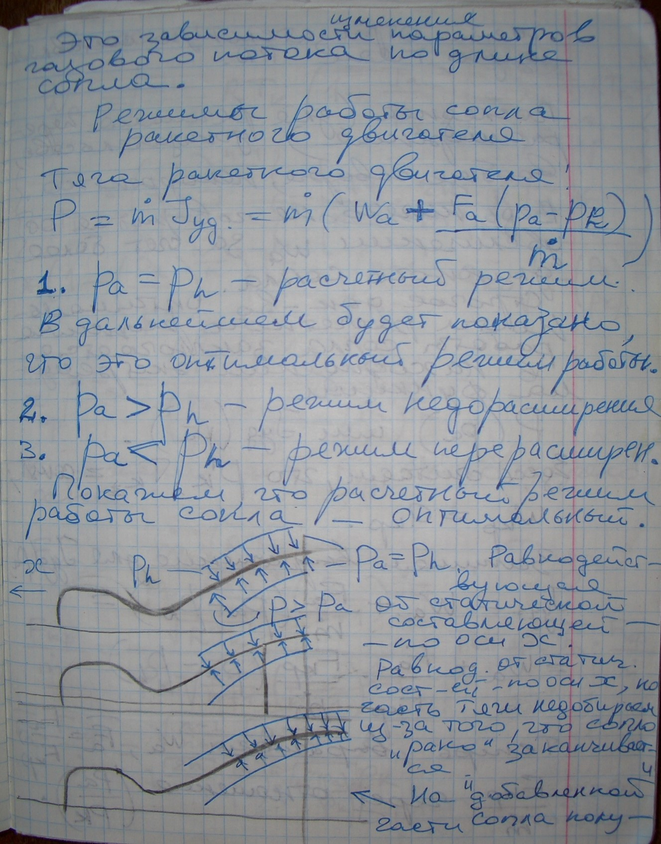 изменения
Это зависимости параметров
газового потока по длине
сопла.
Режимы работы сопла
ракетного двигателя
Тяга ракетного двигателя:
P = ṁ Jуд. = ṁ ( Wa + Fa (pa - ph) / ṁ )
1. pa = ph – расчетный режим.
В дальнейшем будет показано,
что это оптимальный режим работы.
2. pa > ph – режим недорасширения
3. pa < ph – режим перерасширен.
Покажем что расчетный режим
работы сопла – оптимальный.
x
Ph
Pa = Ph. Равнодейст-
вующая
P > Pa
от статической
составляющей –
– по оси X.
Равнод. от статич.
сост-ей - по оси x, но
часть тяги недобираем
из-за того, что сопло
"рано" заканчивает-
ся
На "добавленной"
части сопла полу-